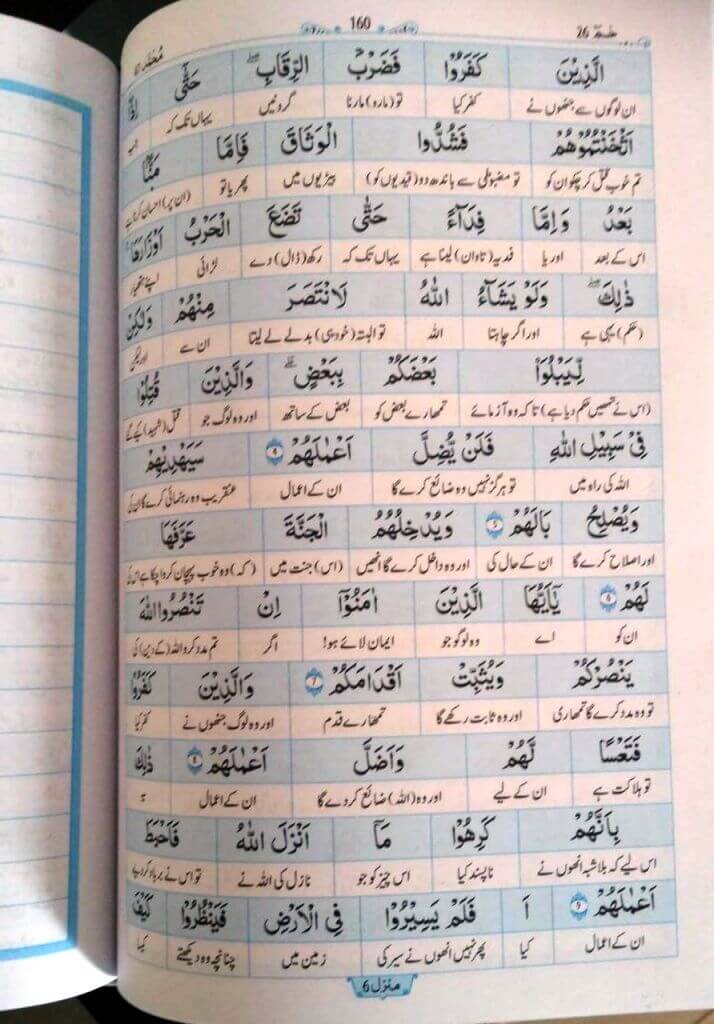 خٰمٓ 26 160 مُحَمَّد ٤٧
الَّذِيْنَ كَفَرُوْا فَضَرْبَ الرِّقَابِ ؕ حَتّٰۤى اِذَاۤ
ان لوگوں سے جنھوں نے کفر کیا تو (مارو) مارنا گردنیں یہاں تک کہ جب
اَثْخَنْتُمُوْهُمْ فَشُدُّوا الْوَثَاقَ فَاِمَّا مَنًّۢا
تم خوب قتل کر چکو ان کو تو مضبوطی سے باندھ دو (قیدیوں کو) بیڑیوں میں پھر یا تو (ان پر) احسان کرنا ہے
بَعْدُ وَاِمَّا فِدَآءً حَتّٰى تَضَعَ الْحَرْبُ اَوْزَارَهَا
اس کے بعد اور یا فدیہ (تاوان) لینا ہے یہاں تک کہ رکھ (ڈال) دے لڑائی اپنے ہتھیار
ذٰلِكَ ؕ وَلَوْ يَشَآءُ اللّٰهُ لَانْتَصَرَ مِنْهُمْ وَلٰكِنْ
(حکم) یہی ہے اور اگر چاہتا اللہ تو البتہ (خود ہی) بدلے لے لیتا ان سے اور لیکن
لِّيَبْلُوَا۟ بَعْضَكُمْ بِبَعْضٍ ؕ وَالَّذِيْنَ قُتِلُوْا
(اس نے تمھیں حکم دیا ہے) تاکہ وہ آزمائے تمھارے بعض کو بعض کے ساتھ اور وہ لوگ جو قتل (شہید) کیے گئے
فِيْ سَبِيْلِ اللّٰهِ فَلَنْ يُّضِلَّ اَعْمٰلَهُمْ 4 سَيَهْدِيْهِمْ
اللہ کی راہ میں تو ہرگز نہیں وہ ضائع کرے گا ان کے اعمال عنقریب وہ رہنمائی کرے گا ان کی
وَيُصْلِحُ بَالَهُمْ 5 وَيُدْخِلُهُمُ الْجَنَّةَ عَرَّفَهَا
اور اصلاح کرے گا ان کے حال کی اور وہ داخل کرے گا انھیں (اس) جنت میں (کہ) وہ خوب پہچان کروا چکا ہے اس کی
لَهُمْ 6 يٰۤاَيُّهَا الَّذِيْنَ اٰمَنُوْۤا اِنْ تَنْصُرُوا اللّٰهَ
ان کو اے وہ لوگو جو ایمان لائے ہو! اگر تم مدد کرو اللہ (کے دین) کی
يَنْصُرْكُمْ وَيُثَبِّتْ اَقْدَامَكُمْ 7 وَالَّذِيْنَ كَفَرُوْا
تو وہ مدد کرے گا تمھاری اور وہ ثابت رکھے گا تمھارے قدم اور وہ لوگ جنھوں نے کفر کیا
فَتَعْسًا لَّهُمْ وَاَضَلَّ اَعْمٰلَهُمْ 8 ذٰلِكَ
تو ہلاکت ہے ان کے لیے اور وہ (اللہ) ضائع کر دے گا ان کے اعمال یہ
بِاَنَّهُمْ كَرِهُوْا مَاۤ اَنْزَلَ اللّٰهُ فَاَحْبَطَ
اس لیے کہ بلاشبہ انھوں نے ناپسند کیا اس چیز کو جو نازل کی اللہ نے تو اس نے برباد کر دیے
اَعْمٰلَهُمْ 9 اَ فَلَمْ يَسِيْرُوْا فِي الْاَرْضِ فَيَنْظُرُوْا كَيْفَ
ان کے اعمال کیا پھر نہیں انھوں نے سیر کی زمین میں چنانچہ وہ دیکھتے کیسا
منزل 6